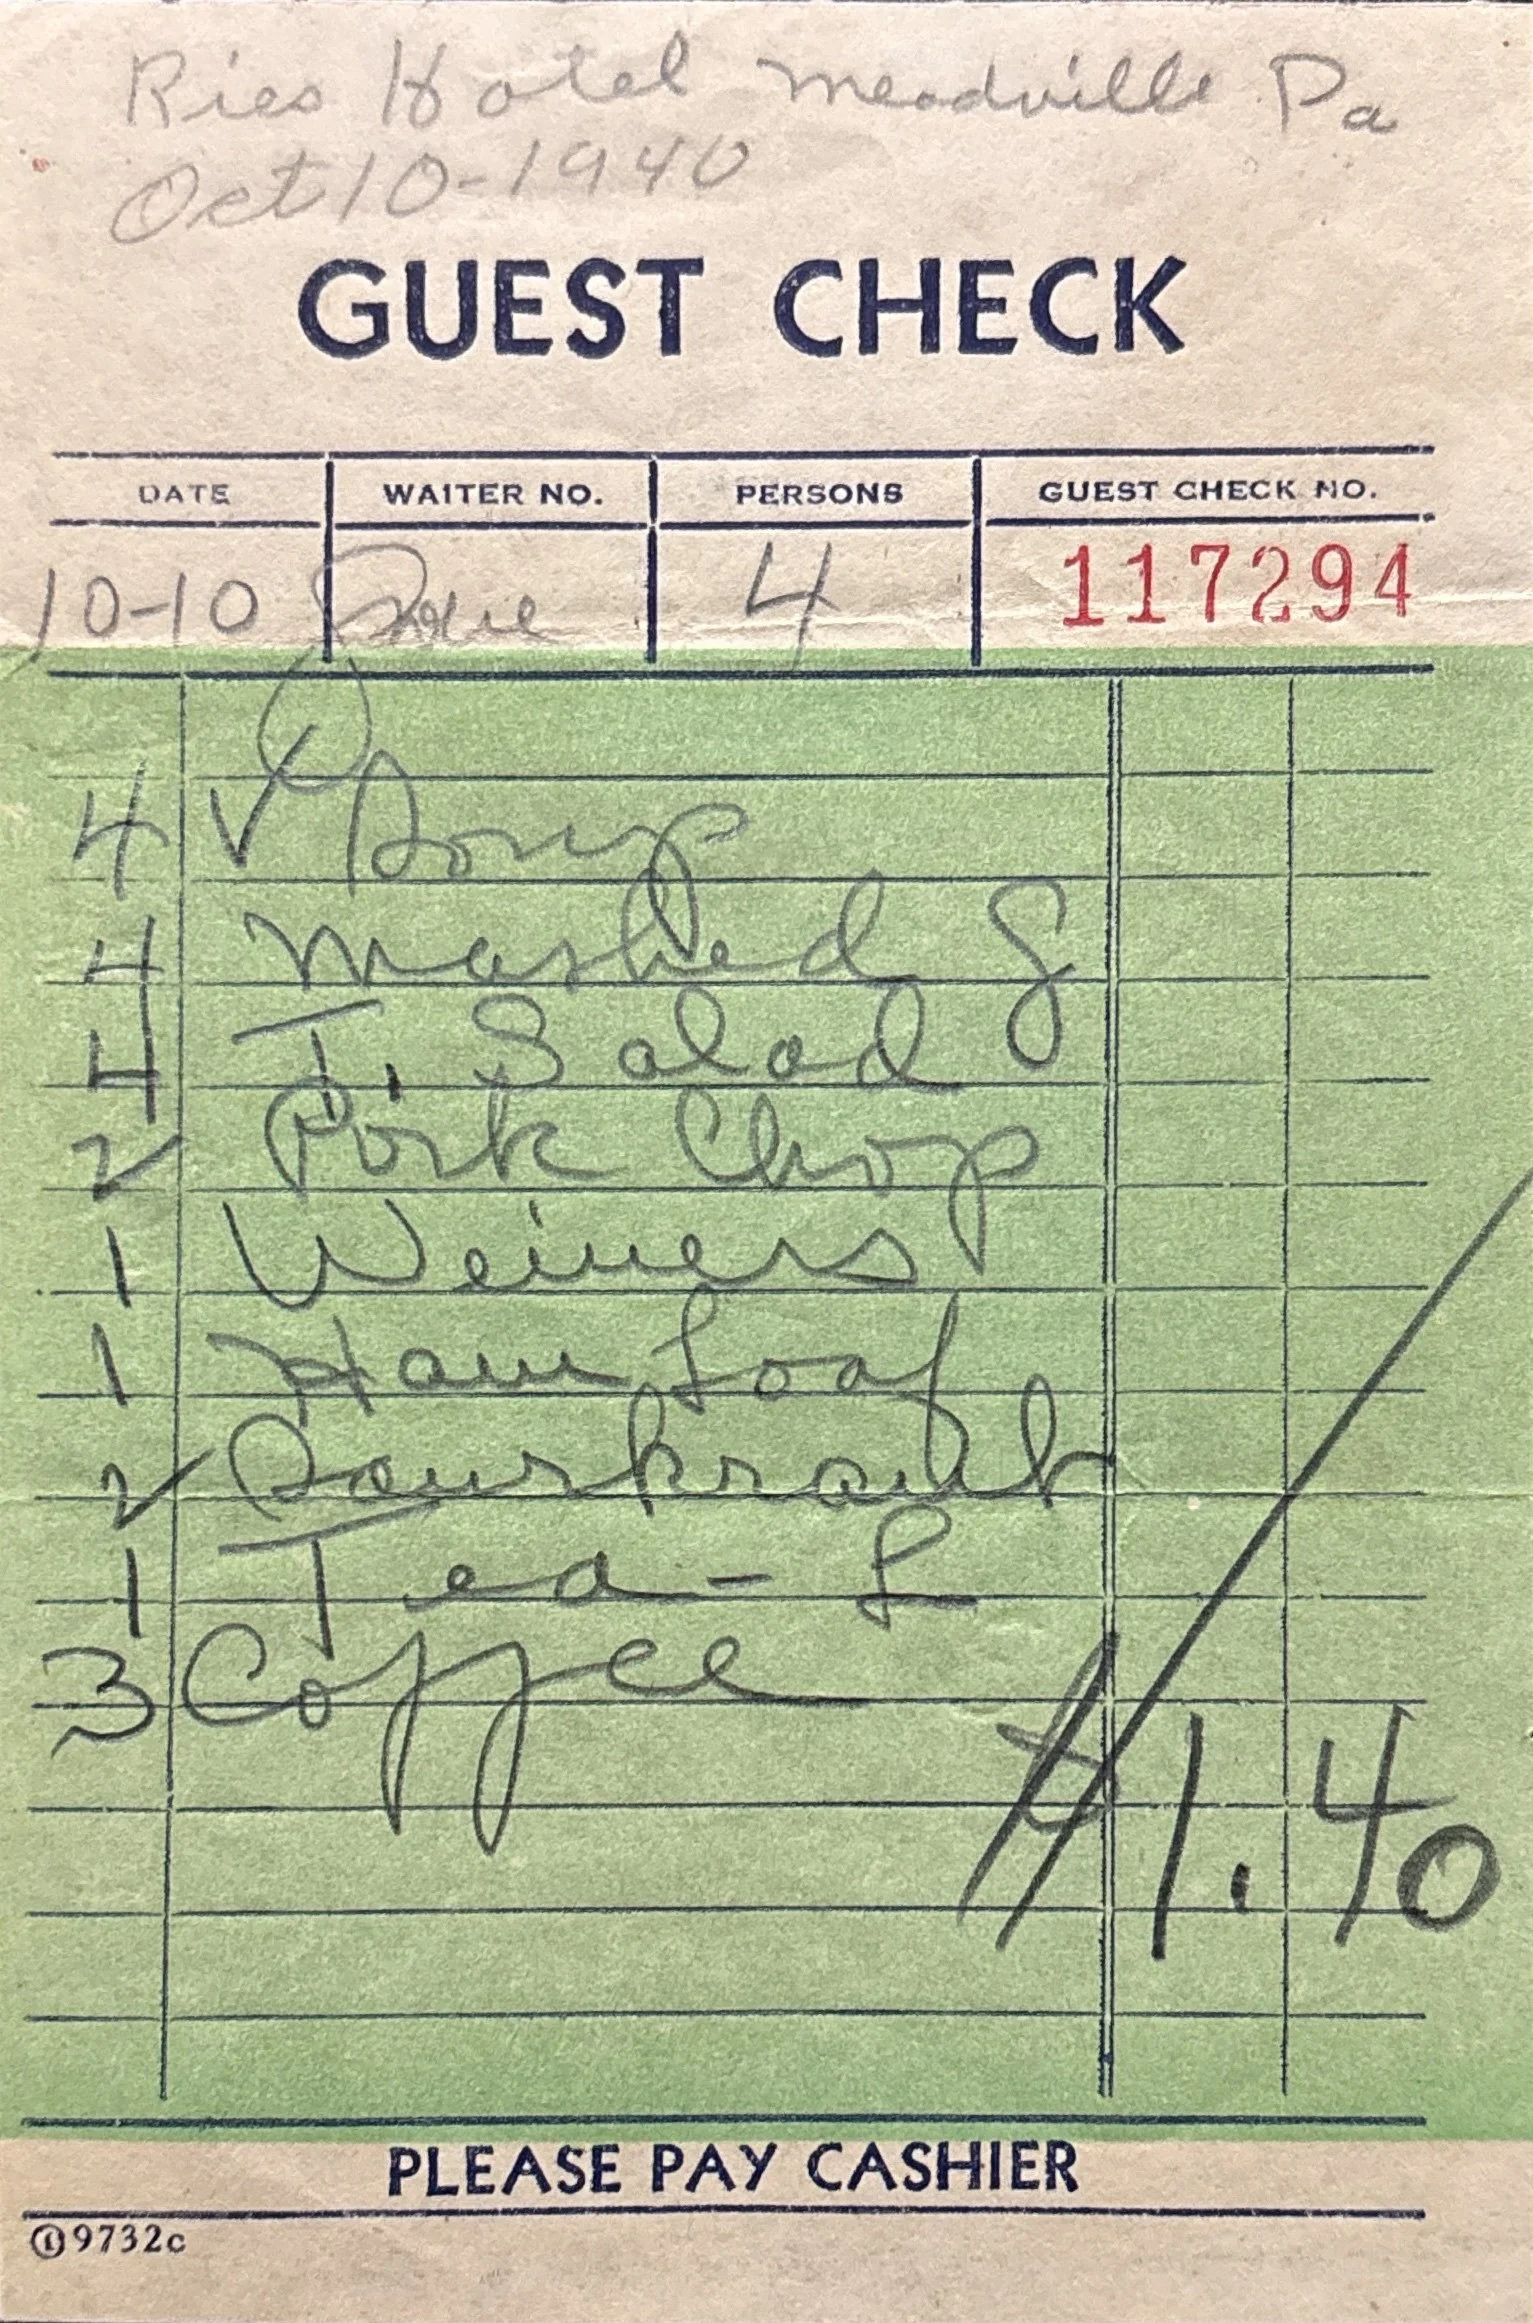 Ries Hotel Meadville Pa
Oct 10-1940
GUEST CHECK
DATE WAITER NO. PERSONS GUEST CHECK NO.
10-10 4 117294
4 ✓ Soup
4 Mashed G
4 T. Salad
2 Pork Chop
1 Weiners
1 Ham Loaf
2 Sourkraut
1 Tea - L
3 Coffee
$1.40
PLEASE PAY CASHIER
9732c